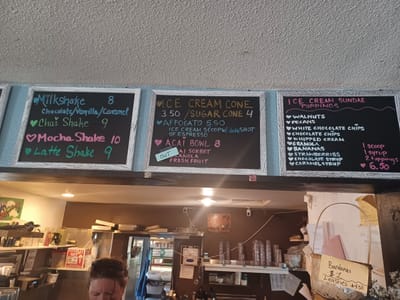 Milkshake 8
Chocolate/Vanilla/Caramel
Chai Shake 9
Mocha Shake 10
Latte Shake 9
ICE CREAM CONE
3.50 / SUGAR CONE 4
AFFOGATO 5.50
ICE CREAM SCOOP W/ SHOT
OF ESPRESSO
ACAI BOWL 8
SORBET
GRANOLA
FRESH FRUIT
ICE CREAM SUNDAE
TOPPINGS
WALNUTS
PECANS
WHITE CHOCOLATE CHIPS
CHOCOLATE CHIPS
WHIPPED CREAM
GRANOLA
BANANAS
STRAWBERRIES
CHOCOLATE SYRUP
CARAMEL SYRUP
1 scoop
1 syrup
2 toppings
6.50
Bandanas